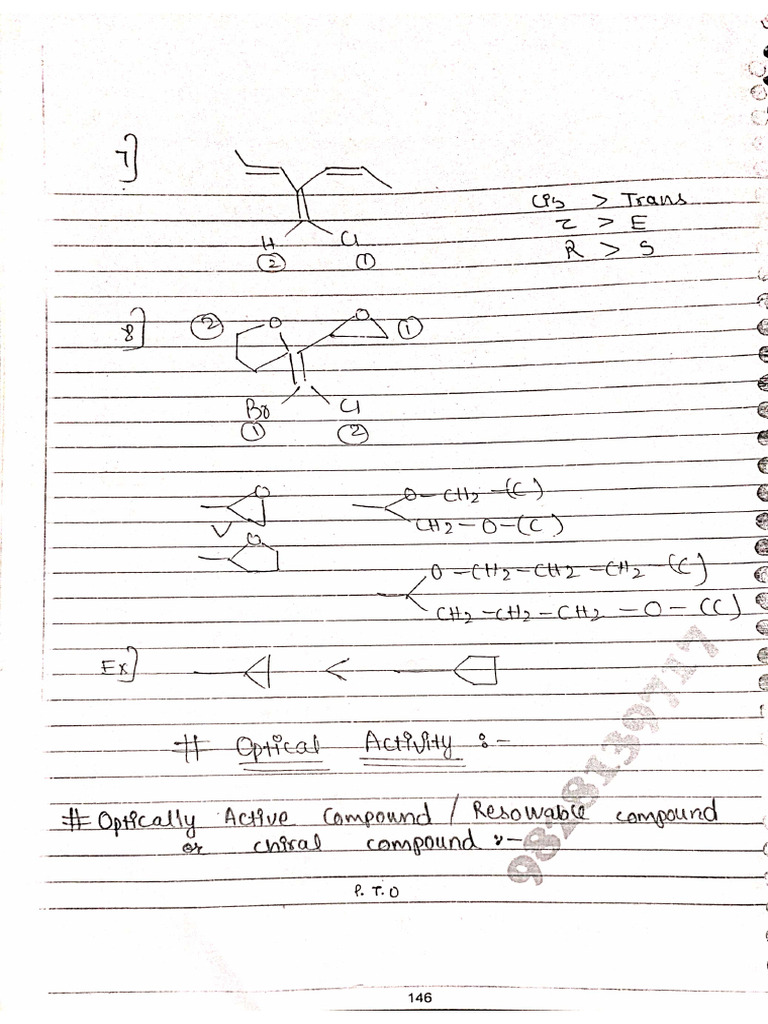 7]
Cis > Trans
Z > E
R > S
H Cl
② ①
8]
② O O ①
Br Cl
① ②
O O-CH2-(C)
CH2-O-(C)
O O-CH2-CH2-CH2-(C)
CH2-CH2-CH2-O-(C)
Ex] <
# Optical Activity :-
# Optically Active Compound / Resowable compound
or chiral compound :-
P.T.O
146